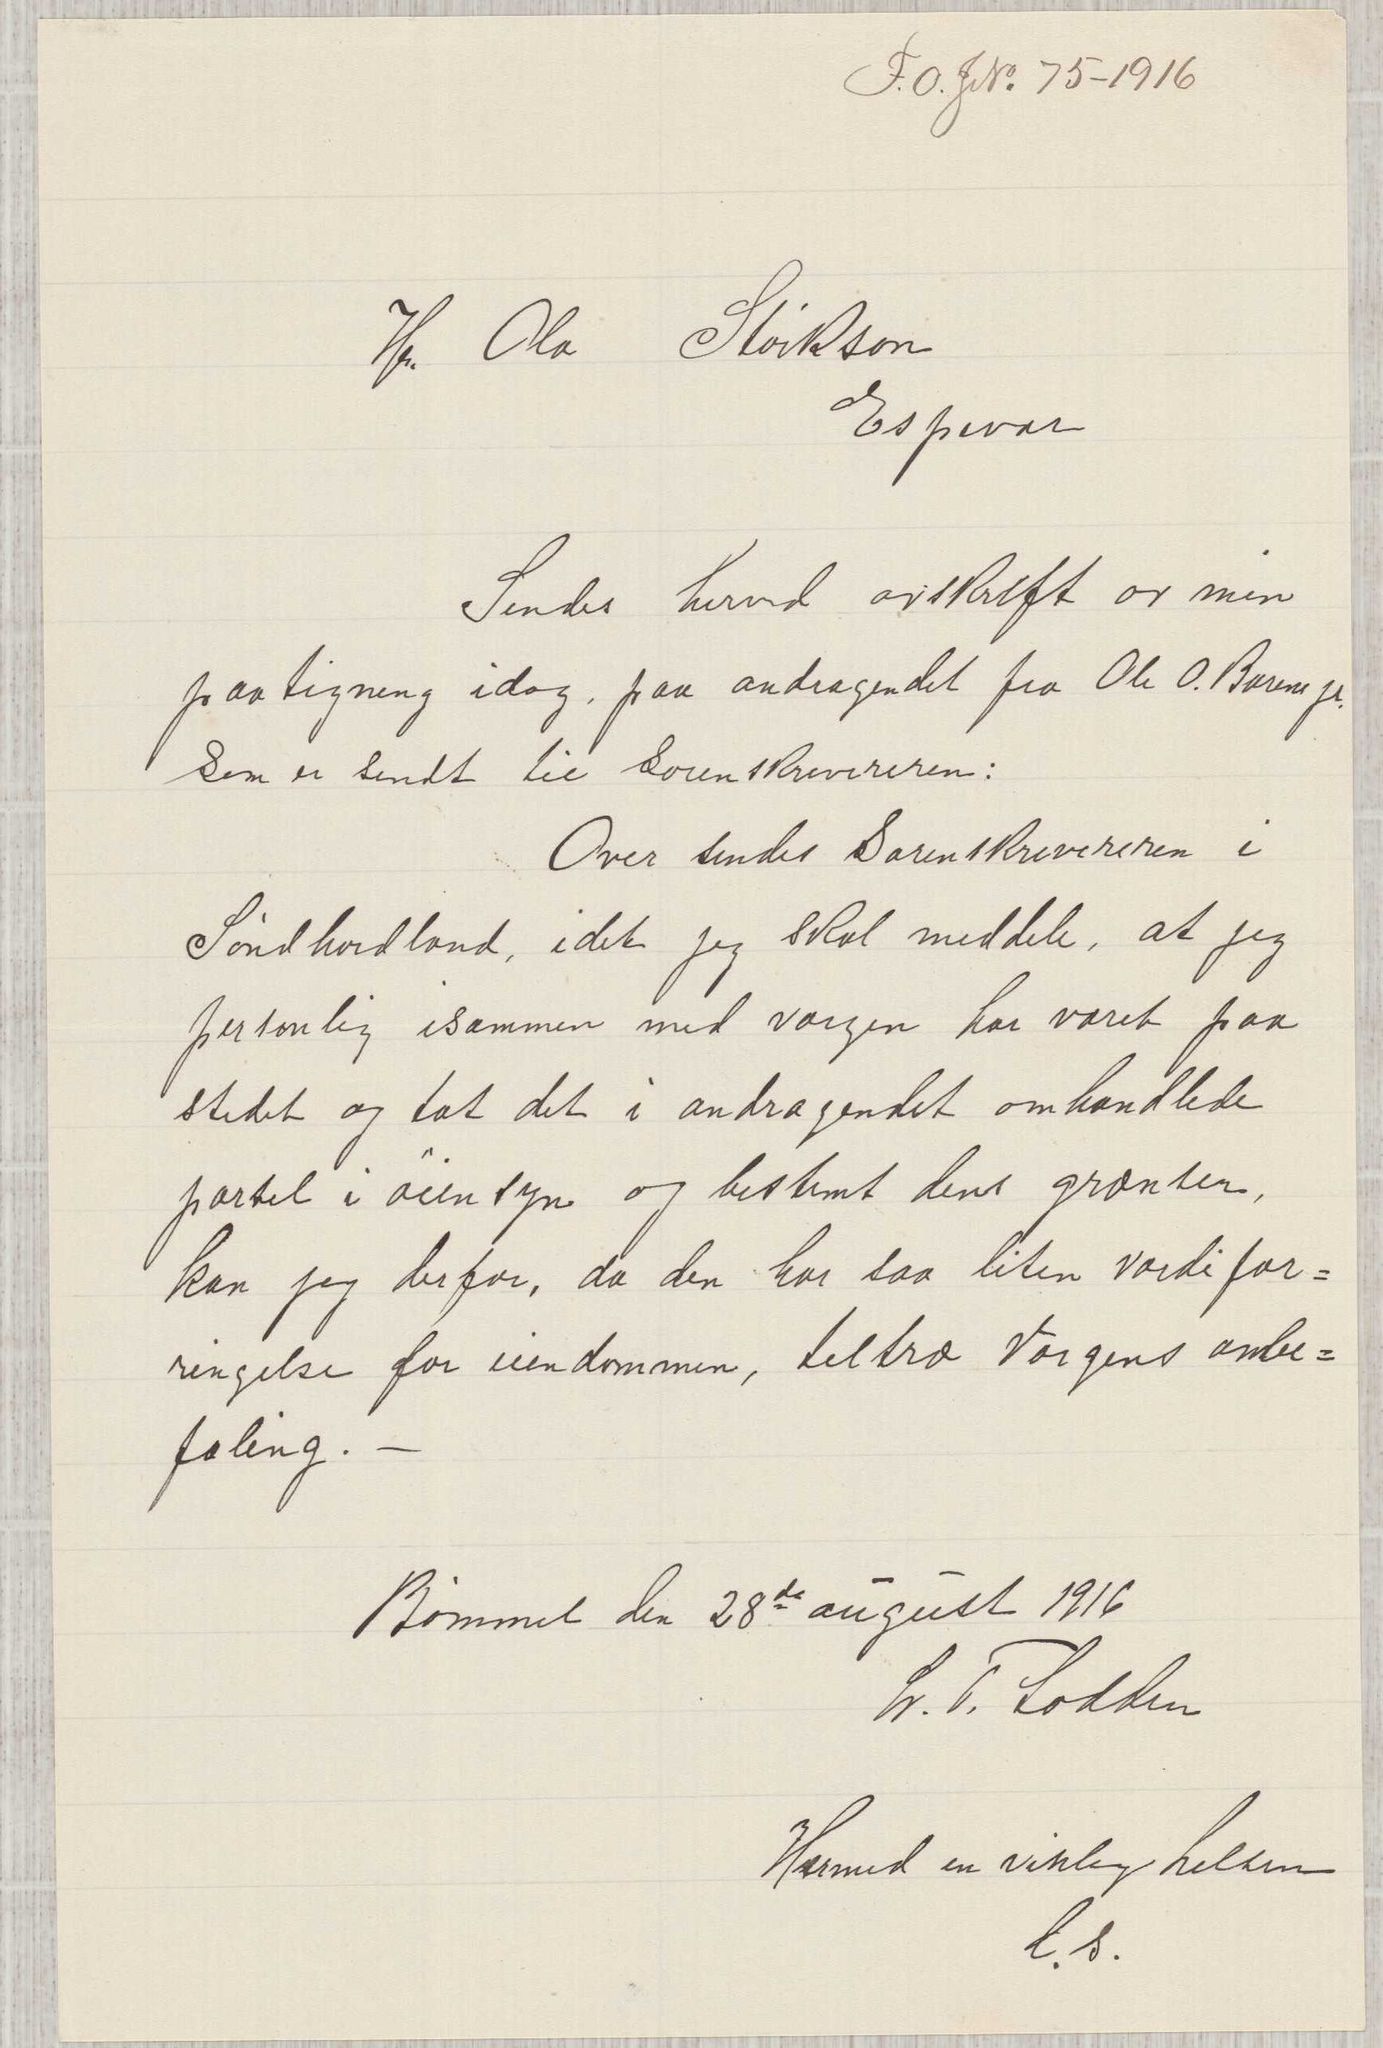 F.O.JNo. 75-1916
Hr. Ola Störkson
Espevær
Sendes herved avskrift av min
paategning idag, paa andragendet fra Ole O. Barene jr.
som er sendt til Sorenskriveren:
Over sendes Sorenskriveren i
Söndhordland, idet jeg skal meddele, at jeg
personlig isammen med vergen har været paa
stedet og tat det i andragendet omhandlede
parsel i öiensyn og bestemt dens grænser,
kan jeg derfor, da den har saa liten værdifor=
ringelse for eiendommen, tiltræ Vergens anbe=
faling. —
Bömmel den 28de august 1916
T. Lodden
Hermed en venlig helsen